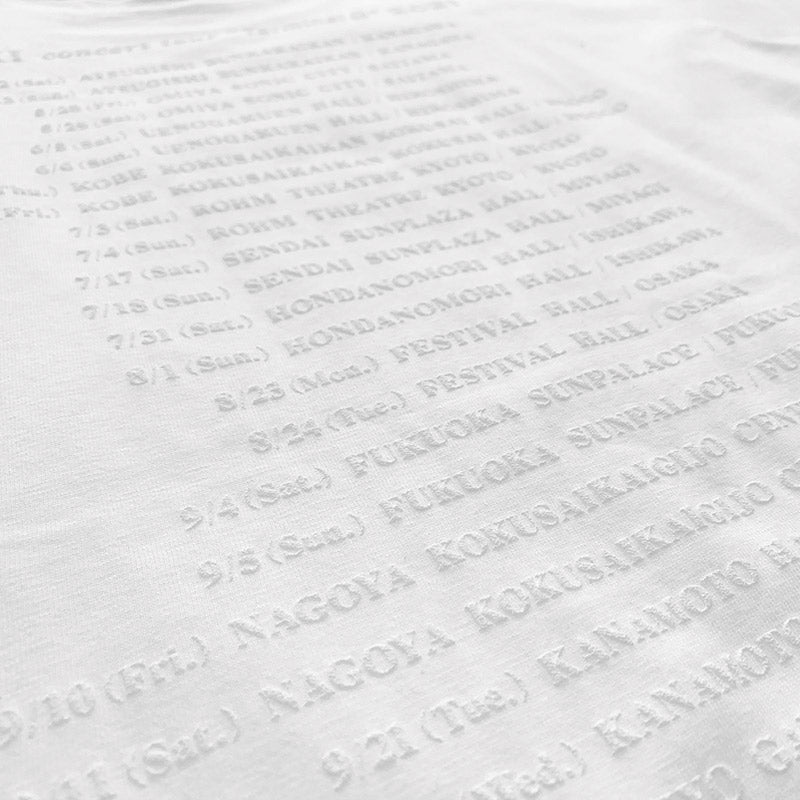 concert tour
(Sat.) ATSUGISHI BUNKAKAIKAN / KANAGAWA
(Sun.) ATSUGISHI BUNKAKAIKAN / KANAGAWA
5/28 (Fri.) OMIYA SONIC CITY / SAITAMA
5/29 (Sat.) OMIYA SONIC CITY / SAITAMA
6/5 (Sat.) UENOGAKUEN HALL /
6/6 (Sun.) UENOGAKUEN HALL /
(Thu.) KOBE KOKUSAIKAIKAN KOKUSAI HALL /
(Fri.) KOBE KOKUSAIKAIKAN KOKUSAI HALL /
7/3 (Sat.) ROHM THEATRE KYOTO / KYOTO
7/4 (Sun.) ROHM THEATRE KYOTO / KYOTO
7/17 (Sat.) SENDAI SUNPLAZA HALL / MIYAGI
7/18 (Sun.) SENDAI SUNPLAZA HALL / MIYAGI
7/31 (Sat.) HONDANOMORI HALL / ISHIKAWA
8/1 (Sun.) HONDANOMORI HALL / ISHIKAWA
8/23 (Mon.) FESTIVAL HALL / OSAKA
8/24 (Tue.) FESTIVAL HALL / OSAKA
9/4 (Sat.) FUKUOKA SUNPALACE / FUKUO
9/5 (Sun.) FUKUOKA SUNPALACE / FU
9/10 (Fri.) NAGOYA KOKUSAIKAIGIJO CEN
11 (Sat.) NAGOYA KOKUSAIKAIGIJO
9/21 (Tue.) KANAMOTO HA
(Wed.) KANAMOTO